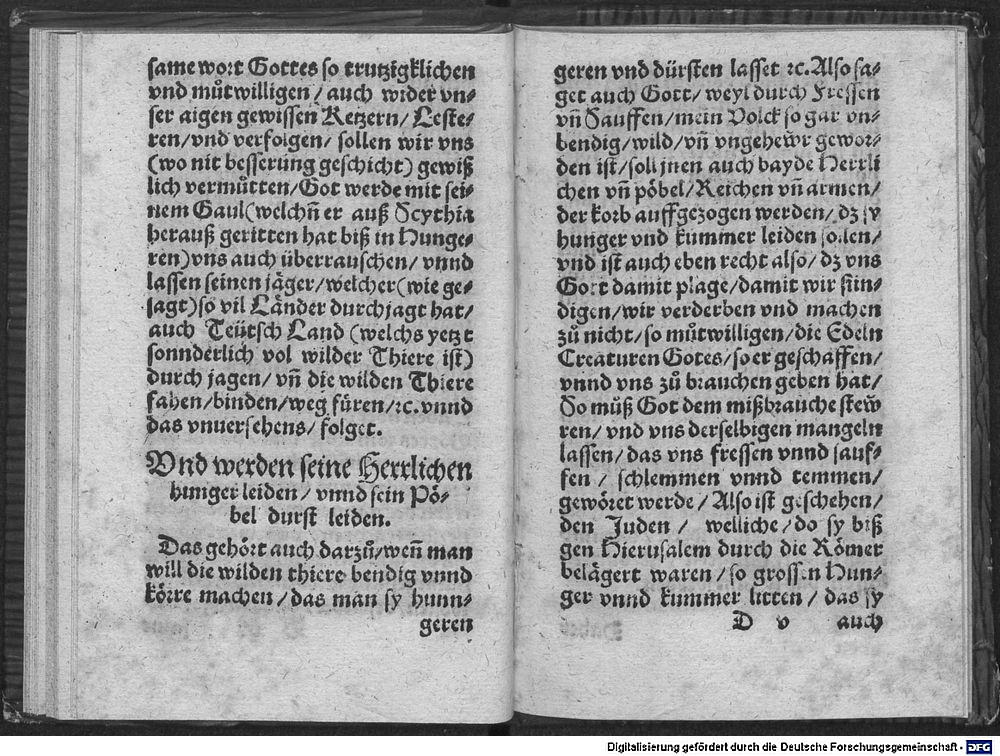 same wort Gottes so trutzigklichen
vnd můtwilligen / auch wider vn⸗
ser aigen gewissen Ketzern / Leste⸗
ren / vnd verfolgen / sollen wir vns
(wo nit besserung geschicht) gewiß
lich vermůtten / Got werde mit sei⸗
nem Gaul (welchñ er auß Scythia
herauß geritten hat biß in Hunge⸗
ren) vns auch überrauschen / vnnd
lassen seinen jäger / welcher (wie ge⸗
sagt) so vil Länder durchjagt hat /
auch Teütsch Land (welchs yetzt
sonnderlich vol wilder Thiere ist)
durch jagen / vñ die wilden Thiere
fahen / binden / weg füren / ꝛc. vnnd
das vnuersehens / folget.
Vnd werden seine Herrlichen
hunger leiden / vnnd sein Pö⸗
bel durst leiden.
Das gehört auch darzů / weñ man
will die wilden thiere bendig vnnd
körre machen / das man sy hunn⸗
geren
geren vnd dürsten lasset ꝛc. Also sa⸗
get auch Gott / weyl durch Fressen
vñ Sauffen / mein Volck so gar vn⸗
bendig / wild / vñ vngehewr gewor⸗
den ist / soll jnen auch bayde Herrli
chen vñ pöbel / Reichen vñ armen /
der korb auffgezogen werden / dz sy
hunger vnd kummer leiden sollen /
vnd ist auch eben recht also / dz vns
Gott damit plage / damit wir sün⸗
digen / wir verderben vnd machen
zů nicht / so můtwilligen / die Edeln
Creaturen Gotes / so er geschaffen /
vnnd vns zů brauchen geben hat /
So můß Got dem mißbrauche stew
ren / vnd vns derselbigen mangeln
lassen / das vns fressen vnnd sauf⸗
fen / schlemmen vnnd temmen /
gewöret werde / Also ist geschehen /
den Juden / welliche / do sy biß
gen Hierusalem durch die Römer
belägert waren / so grossen Hun⸗
ger vnnd kummer litten / das sy
D v auch
Digitalisierung gefördert durch die Deutsche Forschungsgemeinschaft - DFG